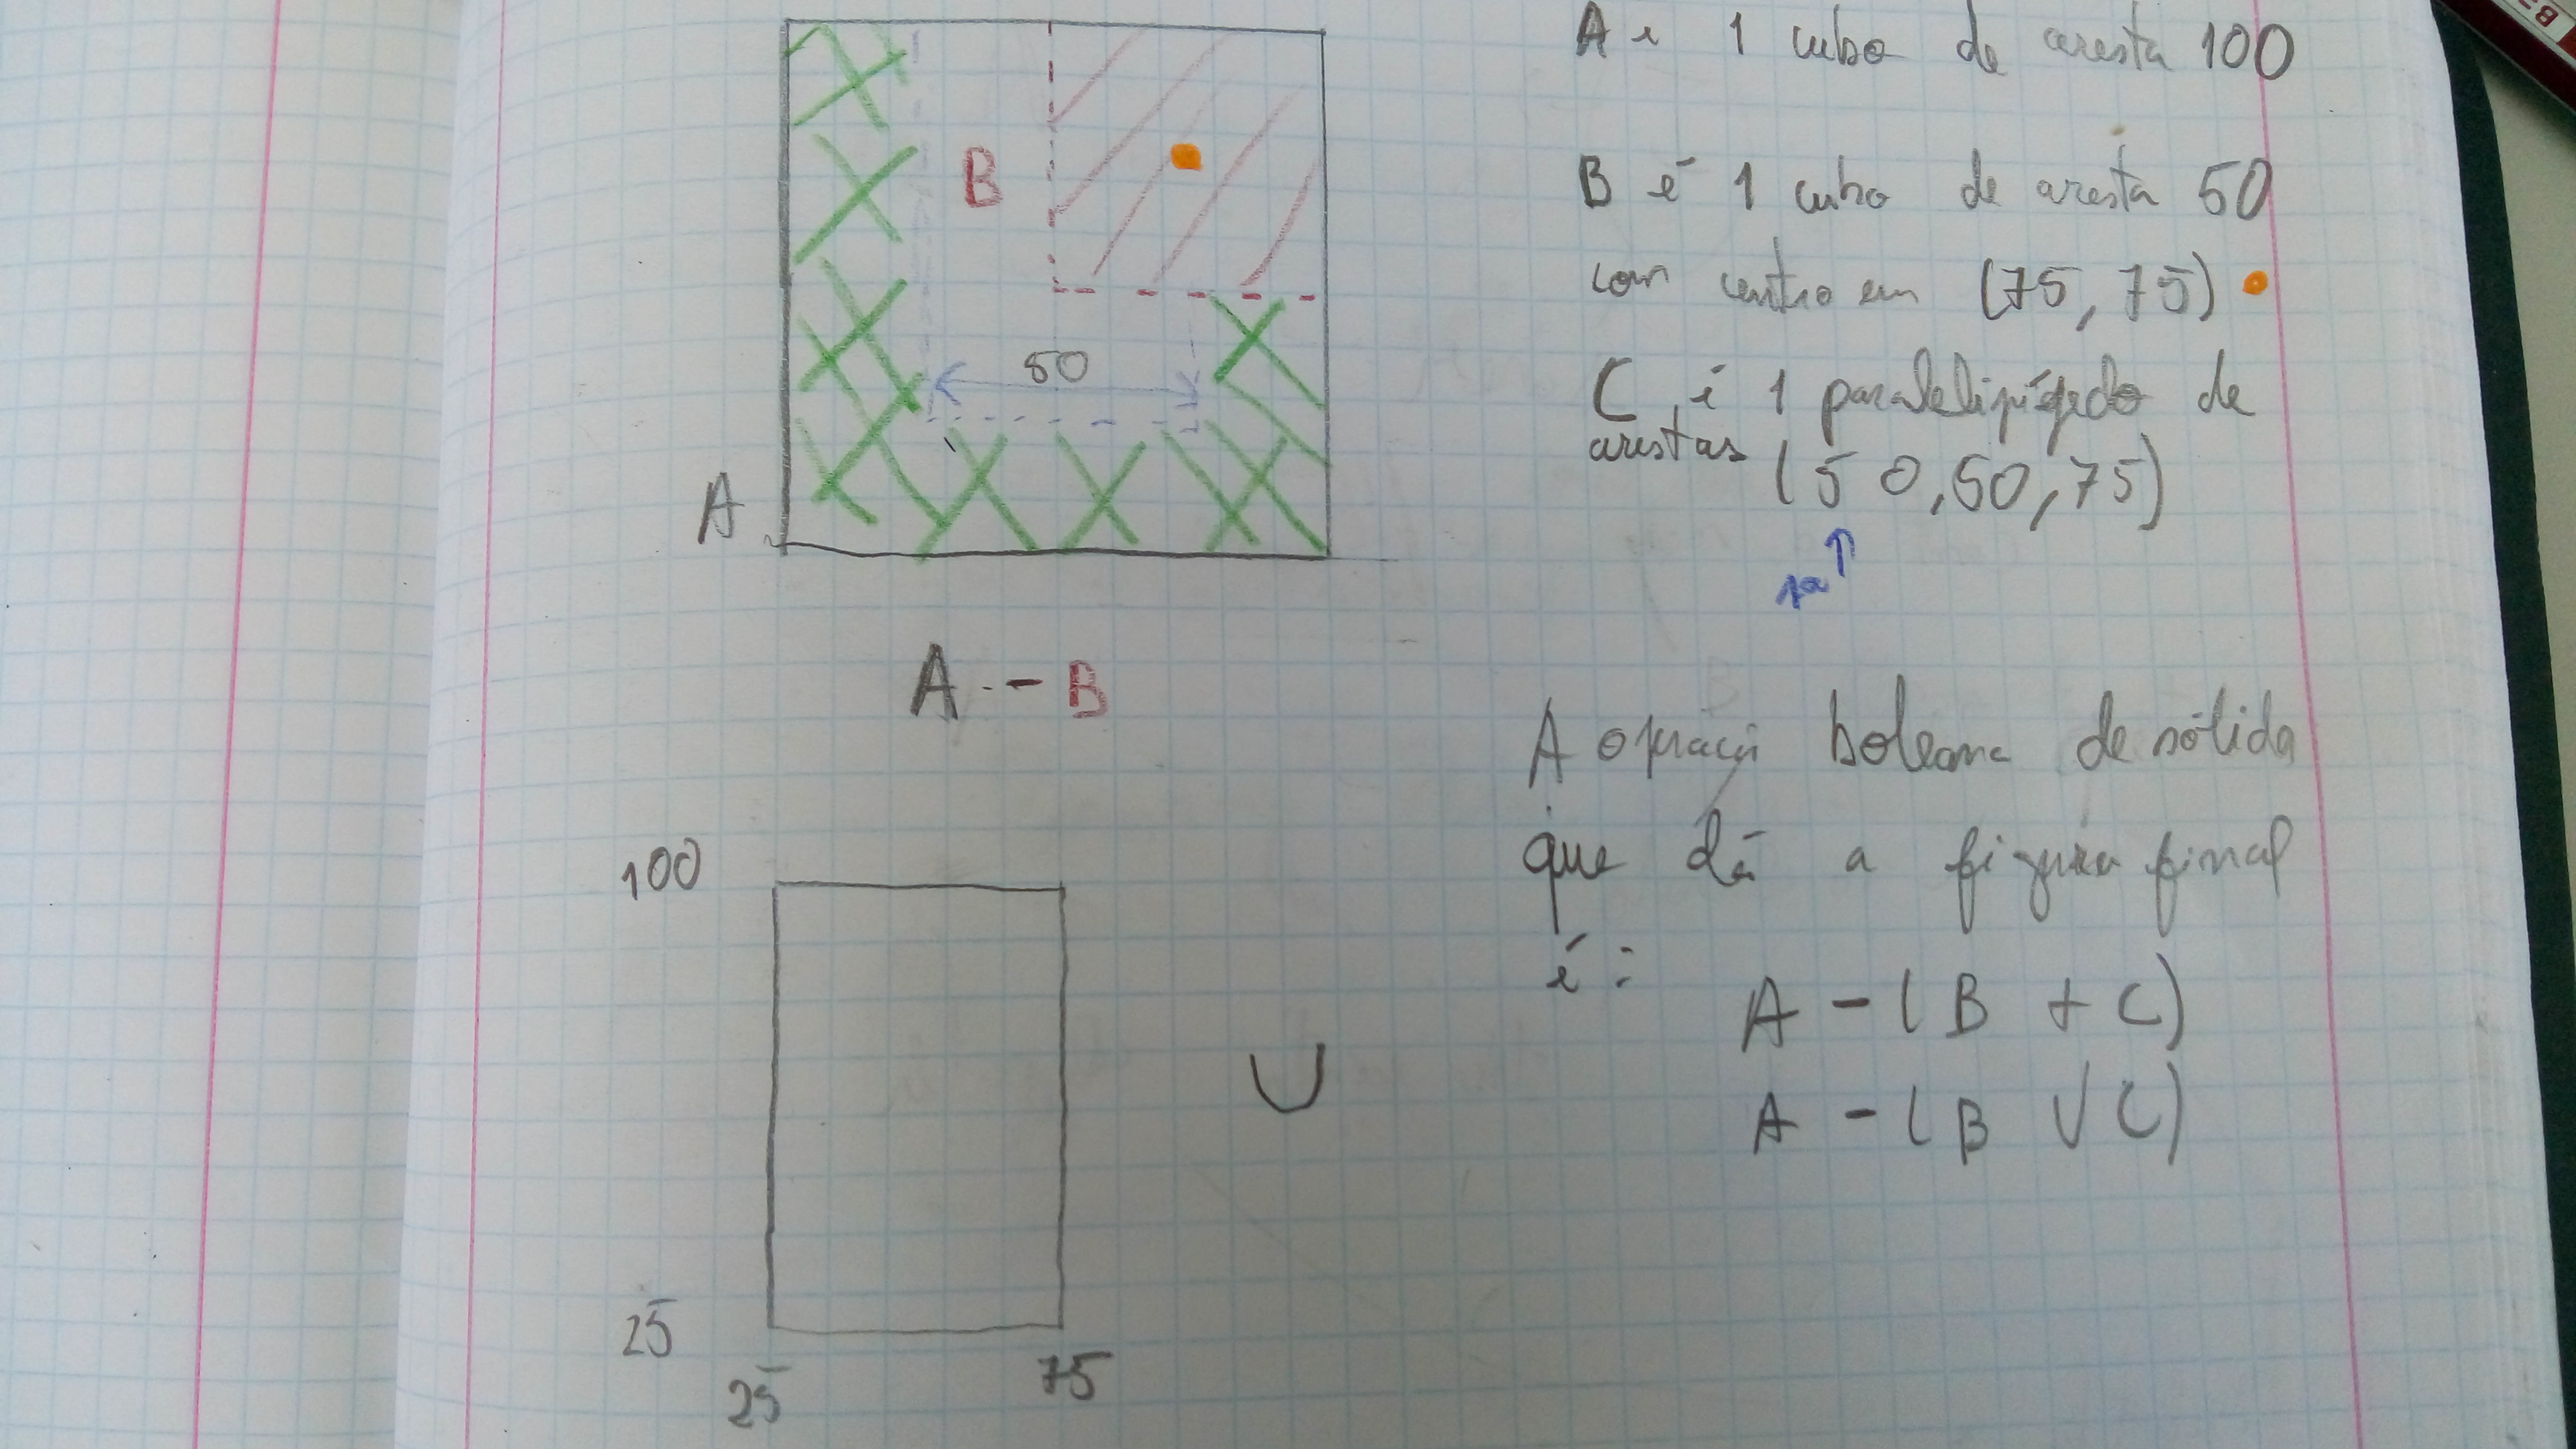 B
50
A
A - B
100
25
25
75
U
A é 1 cubo de aresta 100
B é 1 cubo de aresta 50
com centro em (75, 75)
C é 1 paralelipípedo de
arestas (50,50,75)
1a ↑
A operaçã boleana de sólida
que dá a figura final
é:
A - (B + C)
A - (B U C)